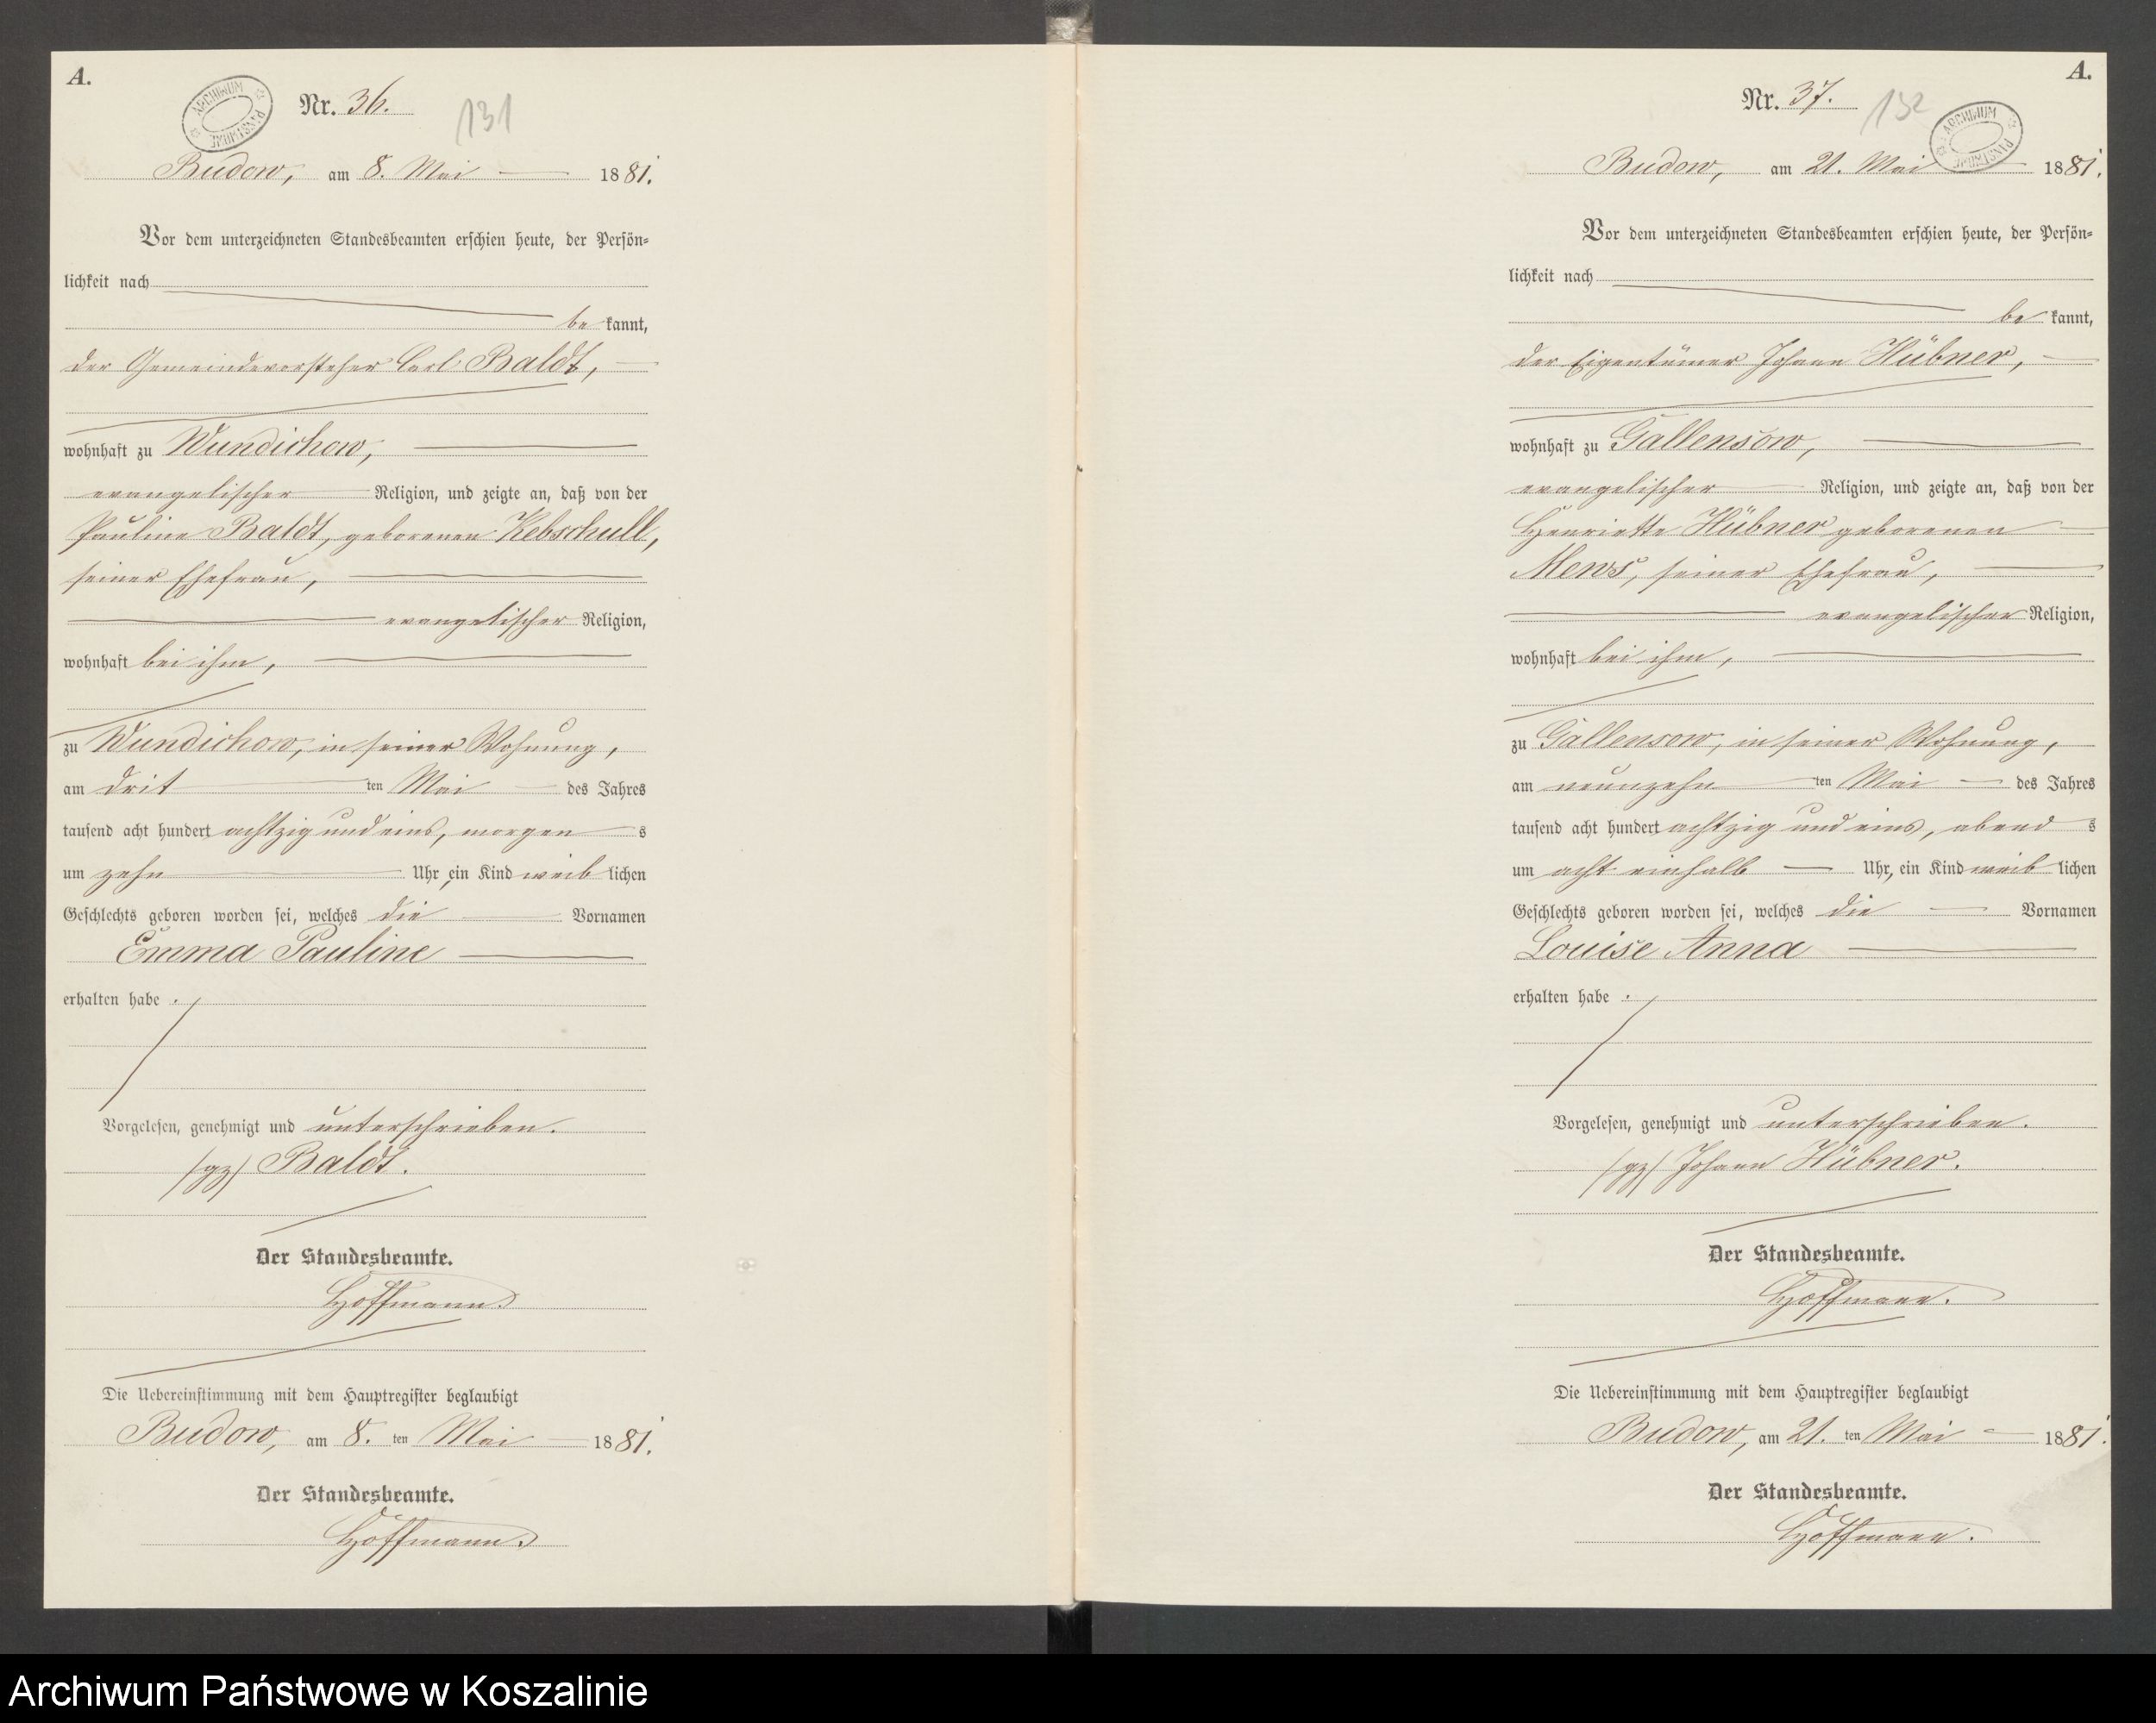 A.
ARCHIWUM PAŃSTWOWE
Nr. 36.
131
Budow, am 8. Mai 1881.
Vor dem unterzeichneten Standesbeamten erschien heute, der Persön-
lichkeit nach
be kannt,
der Gemeindevorsteher Carl Baldt,
wohnhaft zu Wundichow,
evangelischer Religion, und zeigte an, daß von der
Pauline Baldt, geborenen Kebschull,
seiner Ehefrau,
evangelischer Religion,
wohnhaft bei ihm,
zu Wundichow, in seiner Wohnung,
am drit ten Mai des Jahres
tausend acht hundert achtzig und eins, morgen s
um zehn Uhr, ein Kind weib lichen
Geschlechts geboren worden sei, welches die Vornamen
Emma Pauline
erhalten habe.
Vorgelesen, genehmigt und unterschrieben.
/gz/ Baldt.
Der Standesbeamte.
Hoffmann.
Die Uebereinstimmung mit dem Hauptregister beglaubigt
Budow, am 8. ten Mai 1881.
Der Standesbeamte.
Hoffmann.
A.
Nr. 37.
132
ARCHIWUM PAŃSTWOWE
Budow, am 21. Mai 1881.
Vor dem unterzeichneten Standesbeamten erschien heute, der Persön-
lichkeit nach
be kannt,
der Eigentümer Johann Hübner,
wohnhaft zu Gallensow,
evangelischer Religion, und zeigte an, daß von der
Henriette Hübner geborenen
Mews, seiner Ehefrau,
evangelischer Religion,
wohnhaft bei ihm,
zu Gallensow, in seiner Wohnung,
am neunzehn ten Mai des Jahres
tausend acht hundert achtzig und eins, abend s
um acht einhalb Uhr, ein Kind weib lichen
Geschlechts geboren worden sei, welches die Vornamen
Louise Anna
erhalten habe.
Vorgelesen, genehmigt und unterschrieben.
/gz/ Johann Hübner.
Der Standesbeamte.
Hoffmann.
Die Uebereinstimmung mit dem Hauptregister beglaubigt
Budow, am 21. ten Mai 1881.
Der Standesbeamte.
Hoffmann.
Archiwum Państwowe w Koszalinie